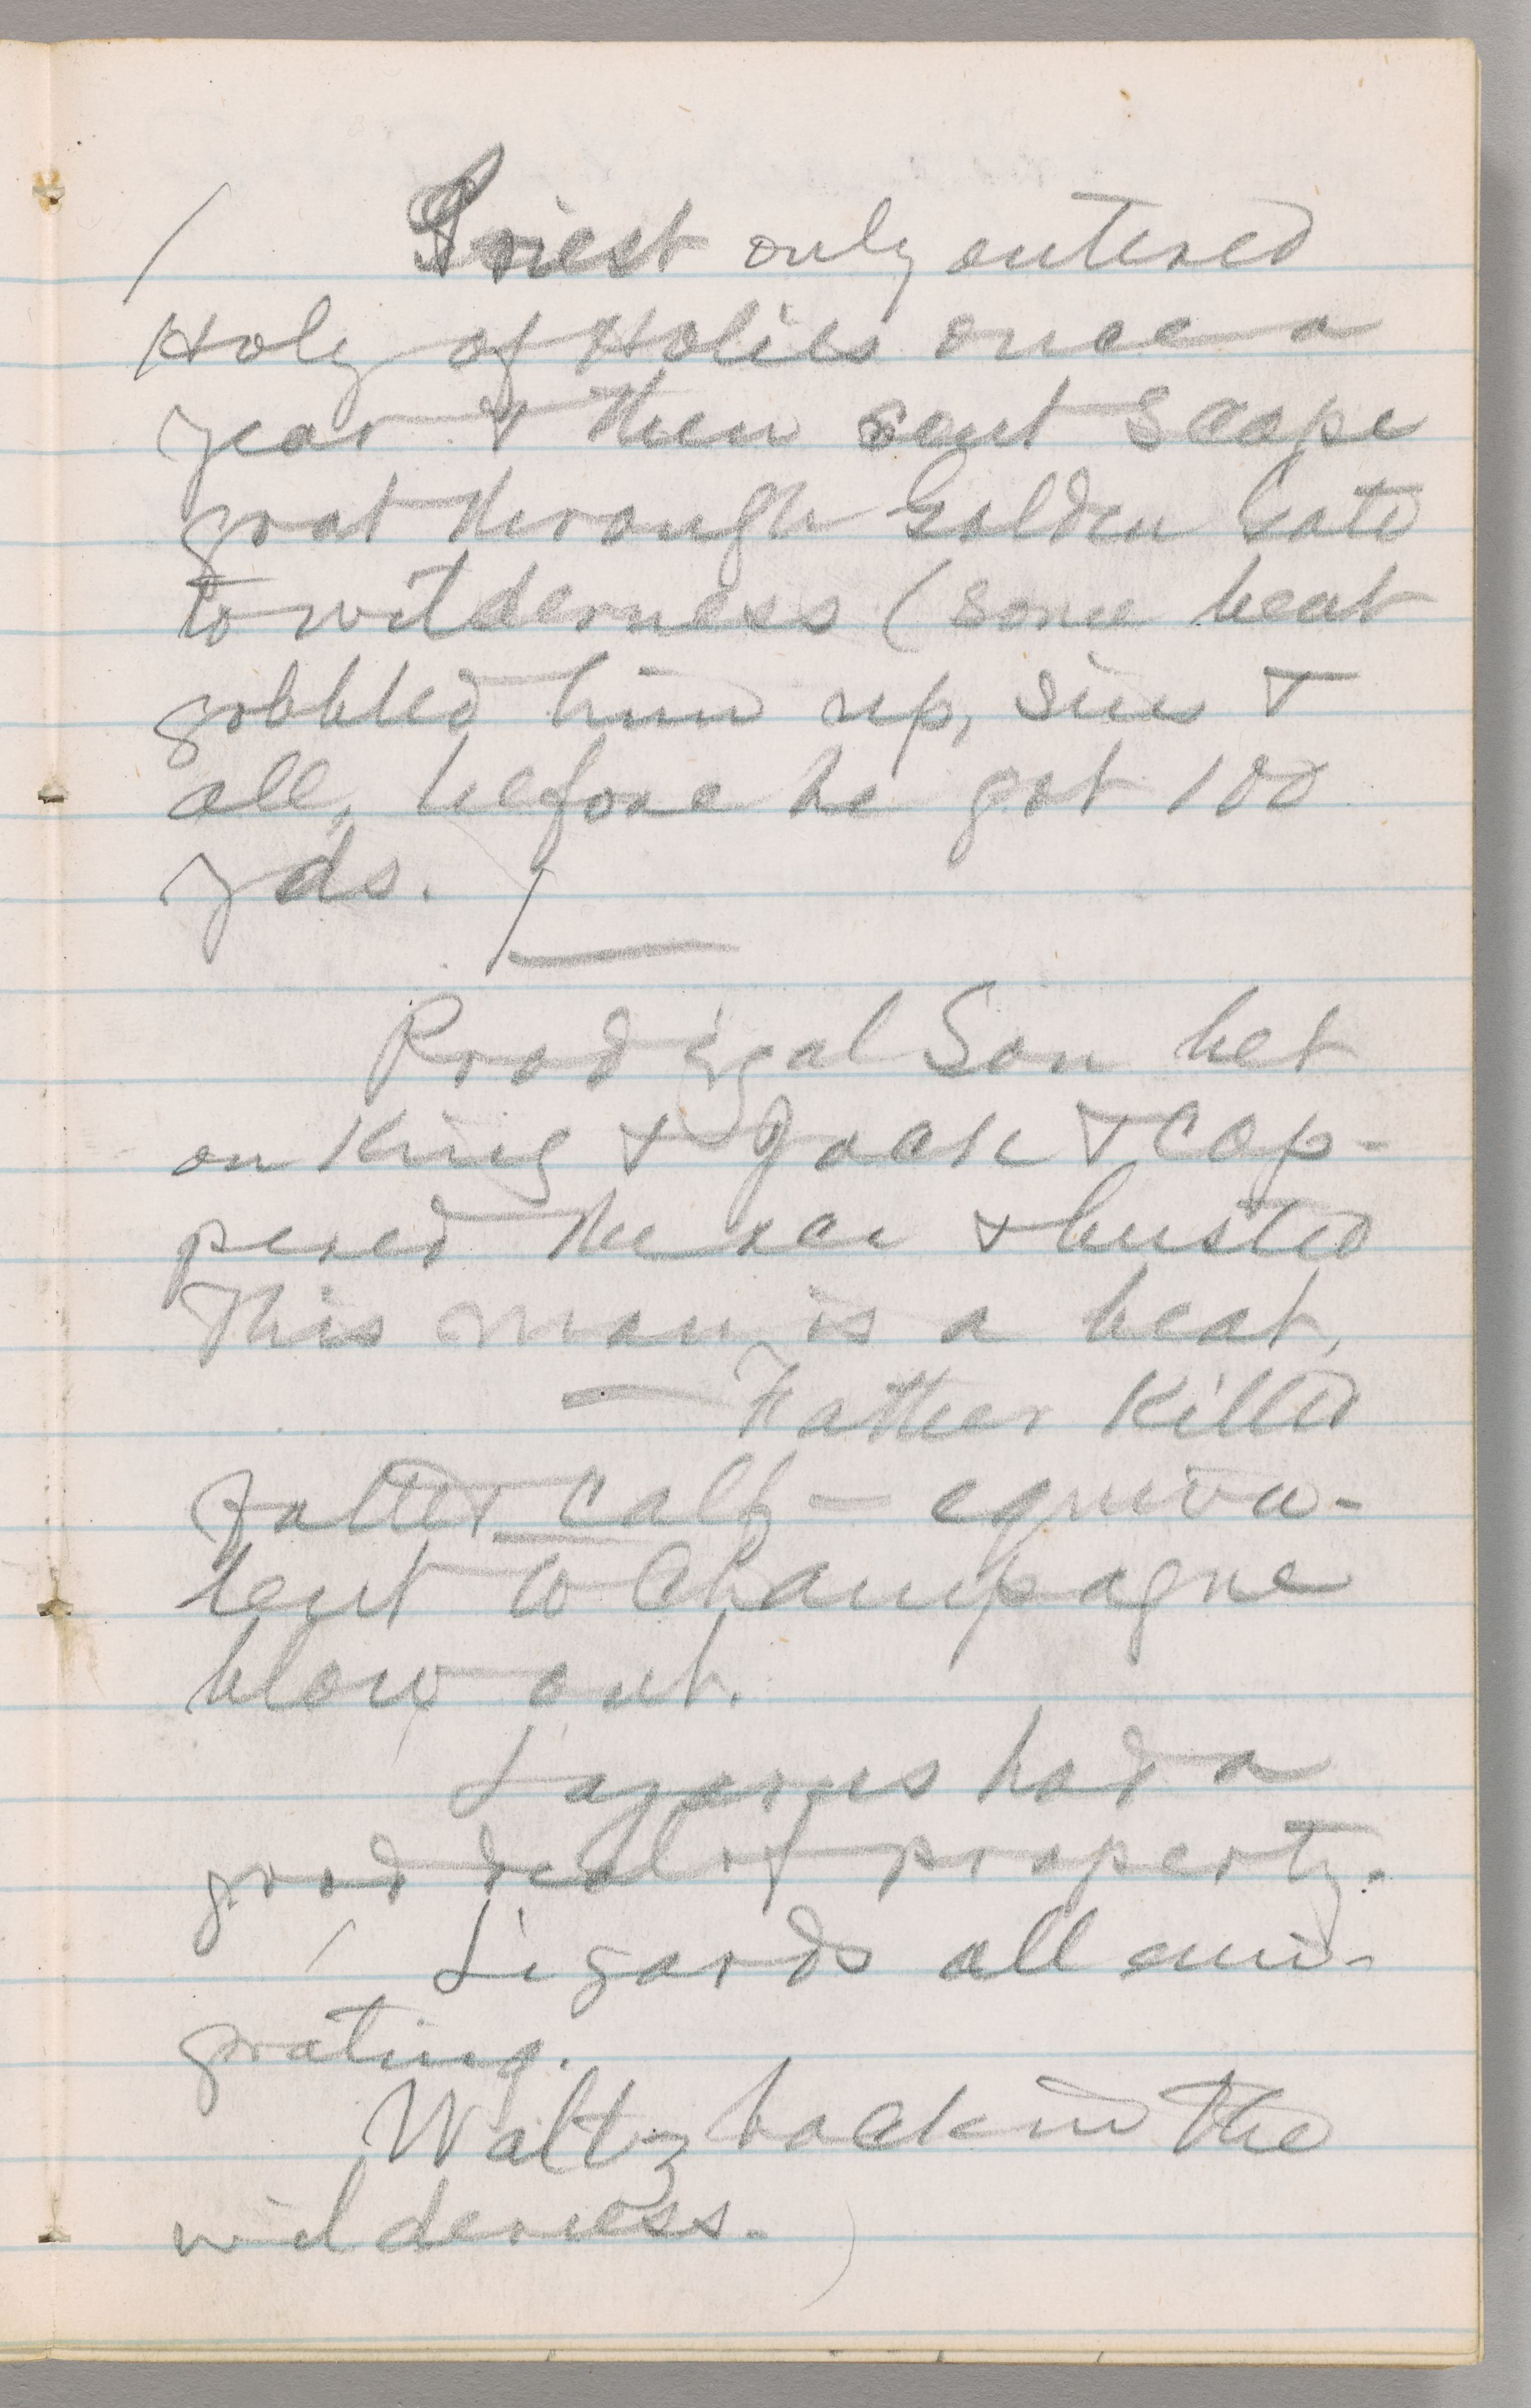 Priest only entered
Holy of Holies once a
year & then sent scape
goat through Golden Gate
to wilderness (some beat
gobbled him up, sins &
all, before he got 100
yds.)
Prodigal Son bet
on King & Jack & cop-
pered the ace & busted
This man is a beat,
— Father killed
fatted calf — equiva-
lent to Champagne
blow out.
Lazarus had a
good deal of property.
Ligards all emi-
grating.
Waltz back in the
wilderness.